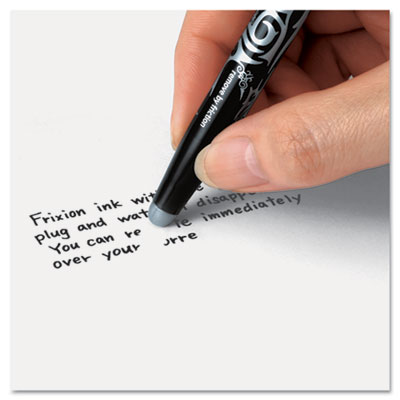 remove by friction
Frixion ink wit
plug and wat disappe
You can re le immediately
over your orre